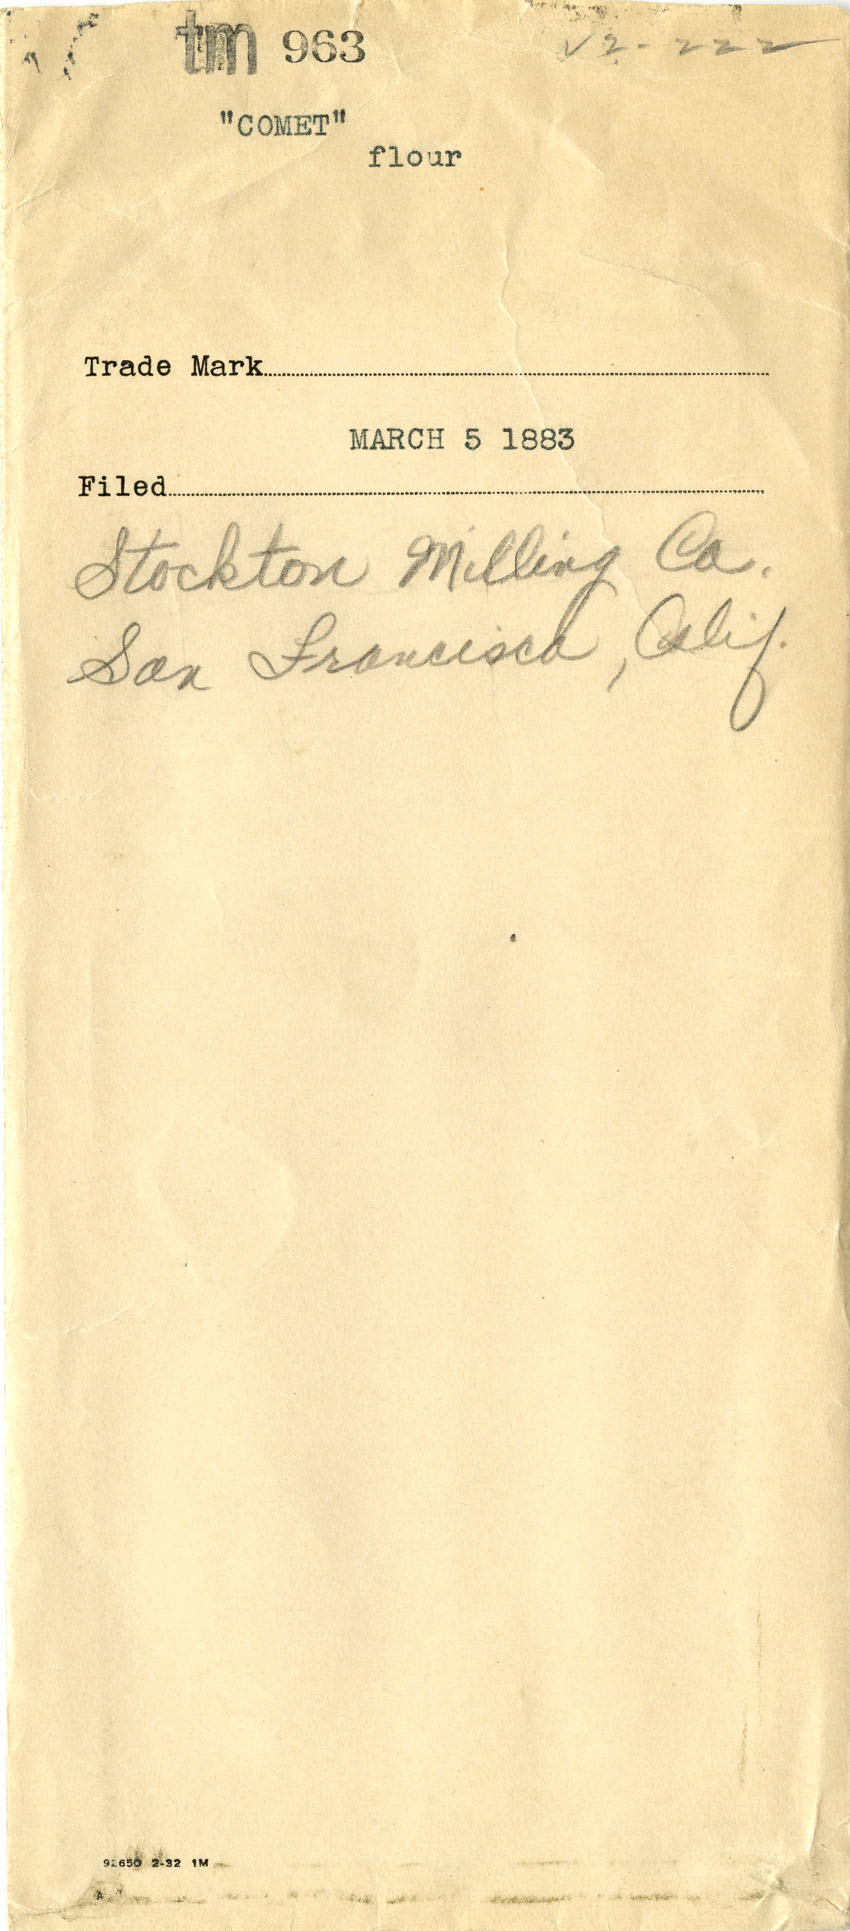 tm 963
v2-222
"COMET"
flour
Trade Mark
MARCH 5 1883
Filed
Stockton Milling Co.
San Francisco, Calif.
2-32 1M